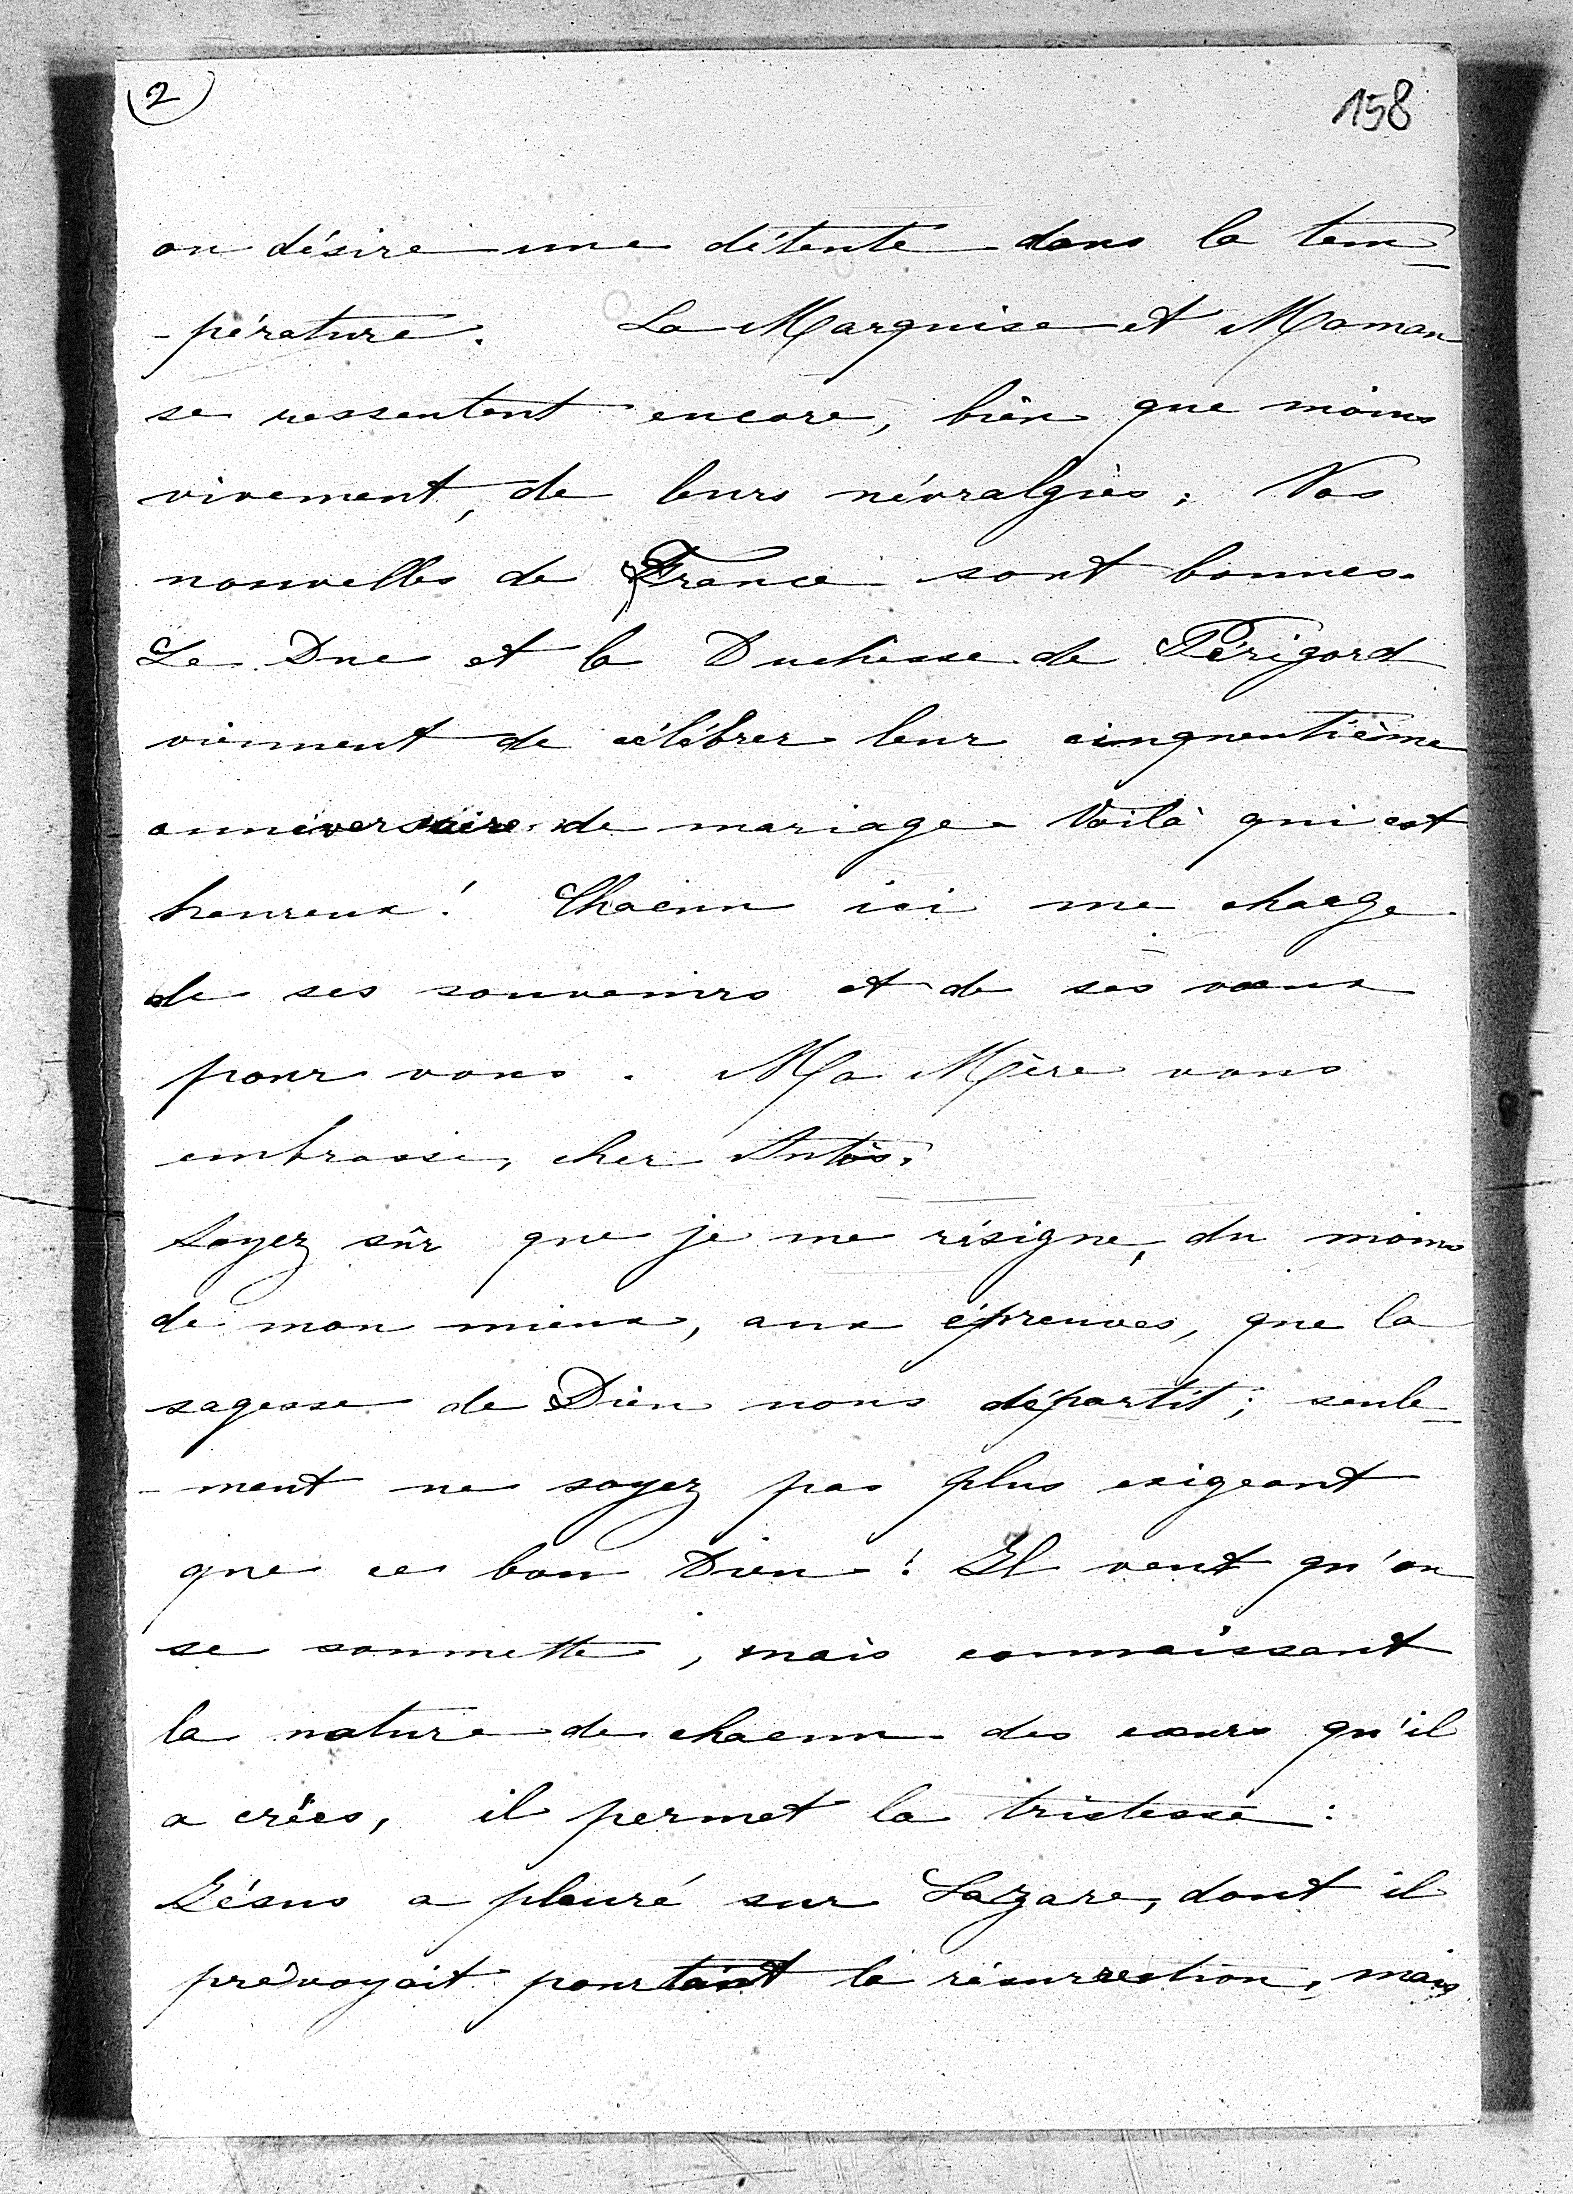 2
158
on désire une détente dans la tem-
-pérature. La Marquise et Maman
se ressentent encore, bien que moins
vivement, de leurs névralgies. Nos
nouvelles de France sont bonnes.
Le Duc et la Duchesse de Périgord
viennent de célébrer leur cinquentième
anniversaire de mariage. Voilà qui est
heureux! Chacun ici me charge
de ses souvenirs et de ses vœux
pour vous. Ma Mère vous
embrasse, cher Antós.
Soyez sûr que je me résigne, du moins
de mon mieux, aux épreuves, que la
sagesse de Dieu nous départit; seule-
-ment ne soyez pas plus exigeant
que ce bon Dieu! Il veut qu'on
se soumette, mais connaissant
la nature de chacun des cœurs qu'il
a créés, il permet la tristesse:
Jésus a pleuré sur Lazare, dont il
prévoyait pourtant la résurrection, mais